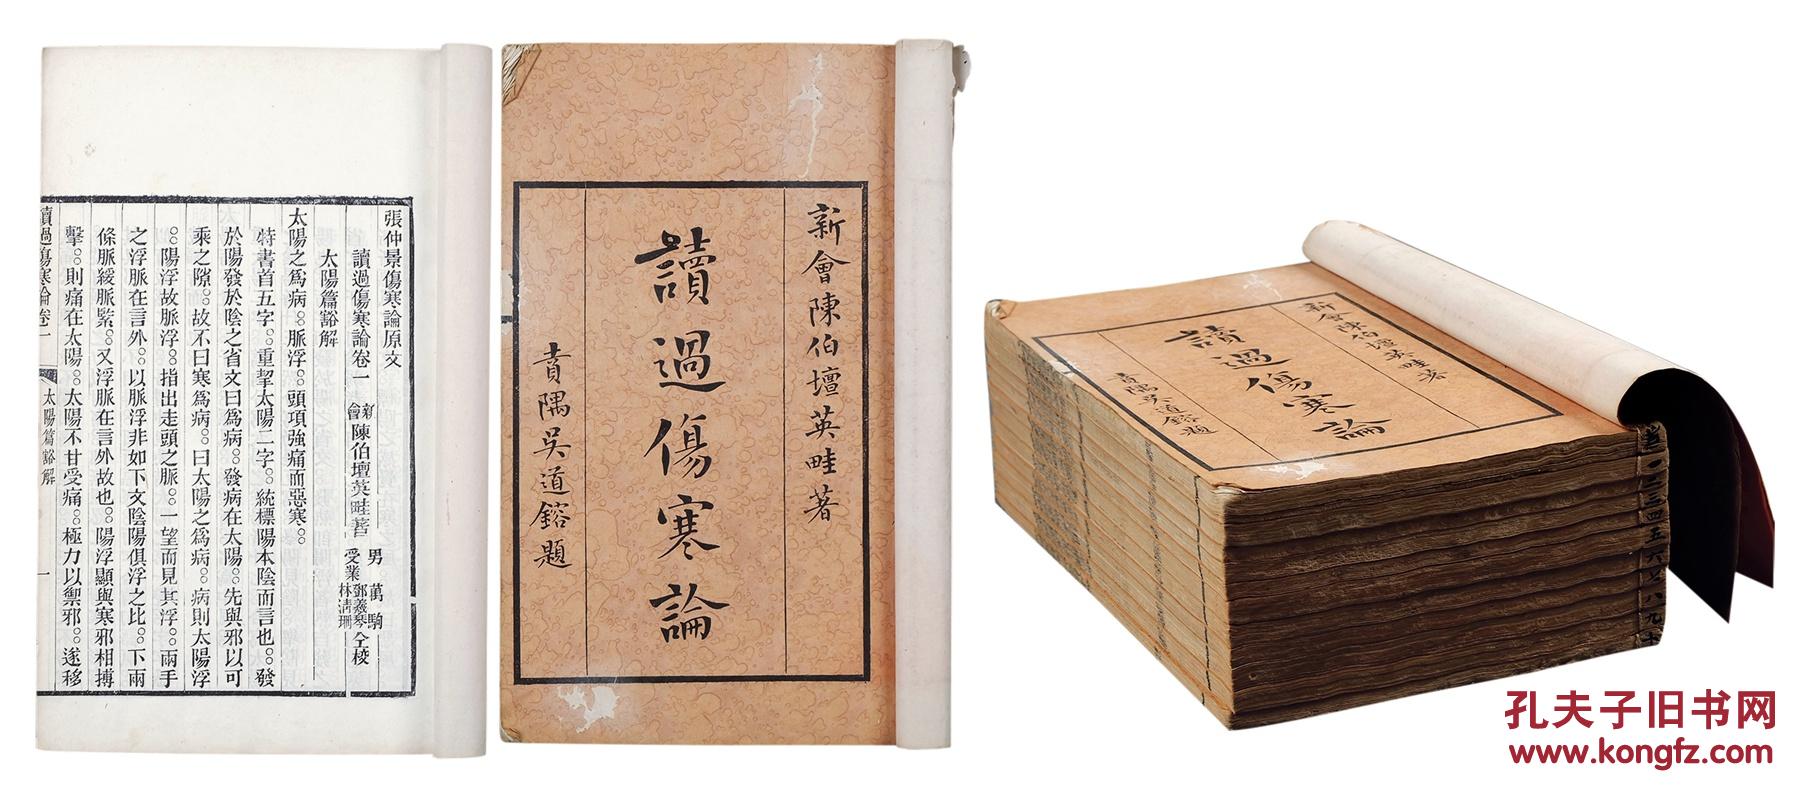 張仲景傷寒論原文
讀過傷寒論卷一 新會陳伯壇英畦著 男萬駒 受業鄧羲琴林清珊仝校
太陽篇豁解
太陽之爲病。脈浮。頭項強痛而惡寒。
特書首五字。重挈太陽二字。統標陽本陰而言也。發
於陽發於陰之省文曰爲病。發病在太陽。先與邪以可
乘之隙。故不曰寒爲病。曰太陽之爲病。病則太陽浮
。陽浮故脈浮。指出走頭之脈。一望而見其浮。兩手
之浮脈在言外。以脈浮非如下文陰陽俱浮之比。下兩
條脈緩脈緊。又浮脈在言外故也。陽浮顯與寒邪相搏
擊。則痛在太陽。太陽不甘受痛。極力以禦邪。遂移
讀過傷寒論卷一 太陽篇豁解 一
新會陳伯壇英畦著
讀過傷寒論
賁隅吳道鎔題
新會陳伯壇英畦著
讀過傷寒論
賁隅吳道鎔題
孔夫子旧书网
www.kongfz.com